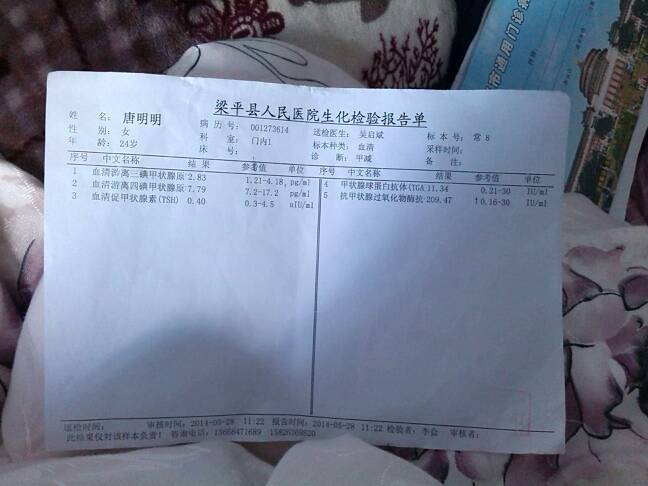 梁平县人民医院生化检验报告单
姓 名: 唐明明 病历号: 001273614 送检医生: 吴启斌 标本号: 常 8
性 别: 女 科 室: 门内1 标本种类: 血清 采样时间:
年 龄: 24岁 床 号: 诊 断: 甲减 备 注:
序号 中文名称 结 果 参考值 单位 序号 中文名称 结果 参考值 单位
1 血清游离三碘甲状腺原 2.83 1.21-4.18, pg/ml 4 甲状腺球蛋白抗体(TGA 11.34 0.21-30 IU/ml
2 血清游离四碘甲状腺原 7.79 7.2-17.2 pg/ml 5 抗甲状腺过氧化物酶抗 209.47 ↑0.16-30 IU/ml
3 血清促甲状腺素(TSH) 0.40 0.3-4.5 uIU/ml
送检时间: 审核时间: 2014-05-28 11:22 报告时间: 2014-05-28 11:22 检验者: 李会 审核者:
此结果仅对该样本负责! 咨询电话: 13668471689 15826369820
市通用门诊